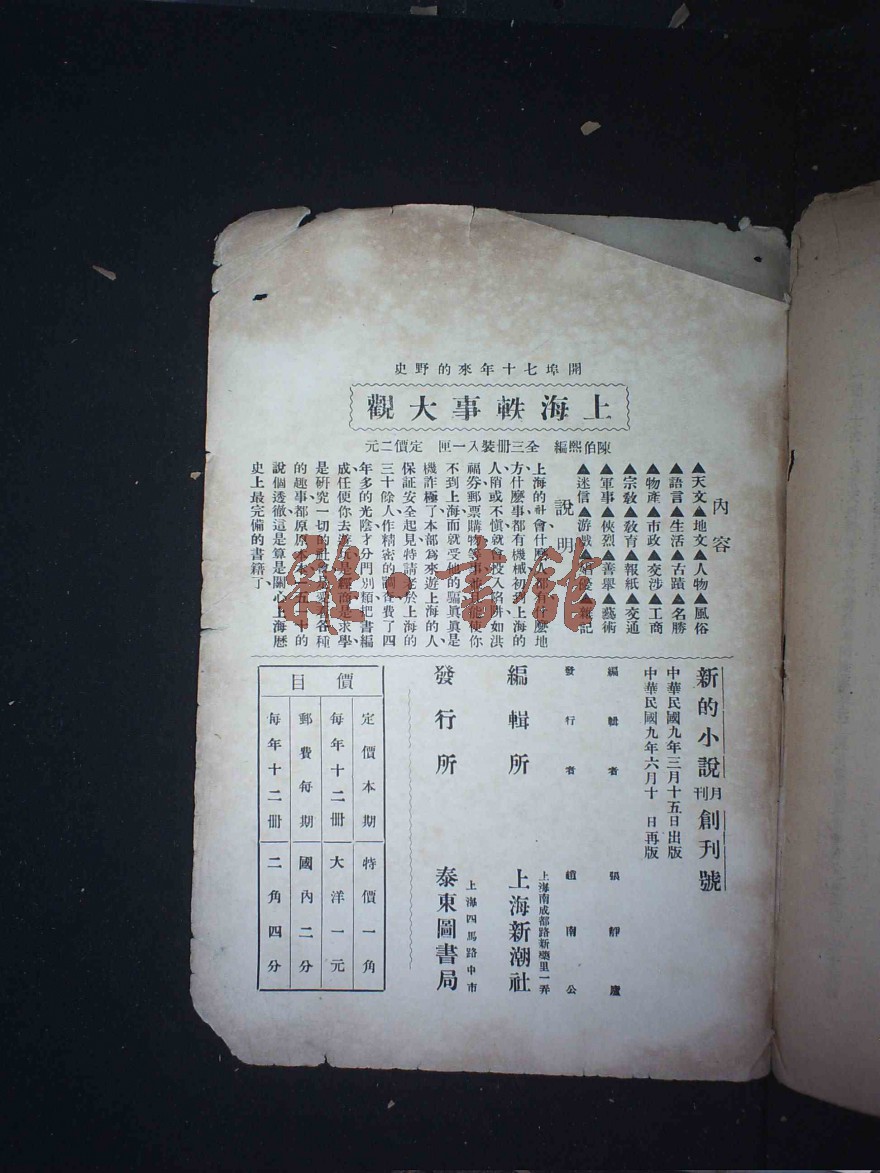 開埠七十年來的野史
上海軼事大觀
陳伯熙編 全三册裝入一匣 定價二元
內容
▲天文▲地文▲人物▲風俗
▲語言▲生活▲古蹟▲名勝
▲物產▲市政▲交涉▲工商
▲宗敎▲敎育▲報紙▲交通
▲軍事▲俠烈▲善舉▲藝術
▲迷信▲游戲▲
說明
上海的社會什麽人都有什麽地
方、什麽事都有機械初到上海的
人、稍或不愼就會投入陷阱如洪
福劵、郵票購物等事
不到上海而就受他的騙眞眞是
機詐極了本部爲來遊上海的人、
保証安全起見特請老於上海的
三十餘人、作精密的調查費了四
年多的光陰才分門別類把書編
成任便你去遊玩是經商是求學、
是研究一切的社會
的趣事都原原本本、五一十的
說個透徹、這是算是關心上海歷
史上最完備的書籍了、
新的小說月刊創刊號
中華民國九年三月十五日出版
中華民國九年六月十 日再版
編輯者 張靜廬
發行者 趙南公
編輯所 上海南成都路新樂里一弄 上海新潮社
發行所 上海四馬路中市 泰東圖書局
價目
定價本期 特價一角
每年十二册 大洋一元
郵費每期 國內二分
每年十二册 二角四分
雜·書館